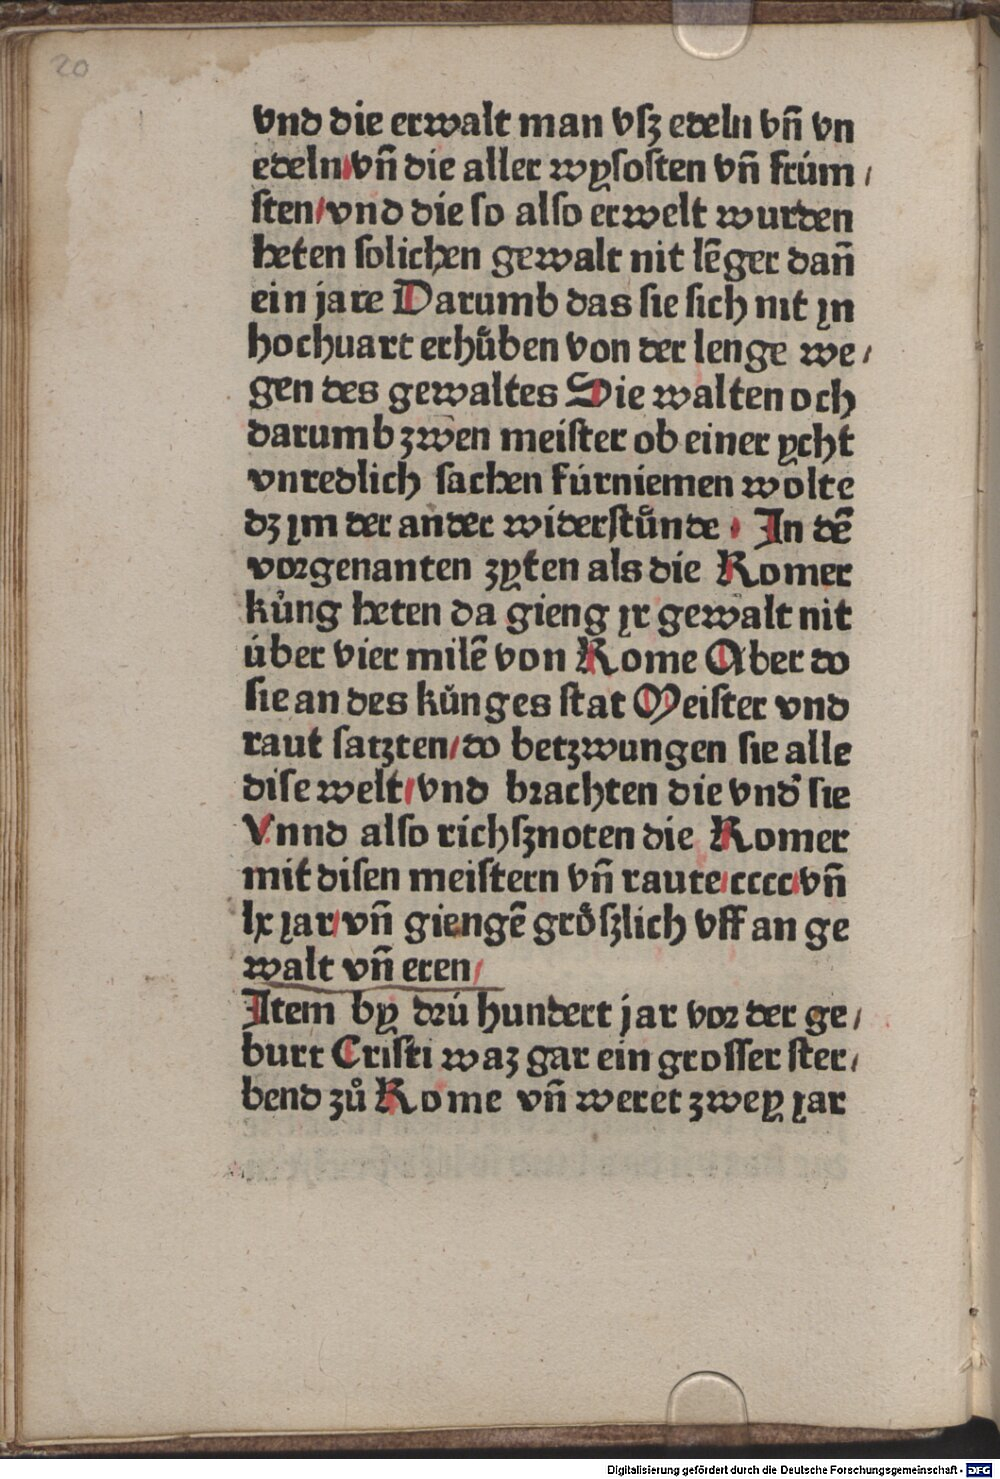 20
vnd die erwalt man vſz edeln vn̄ vn
edeln/vn̄ die aller wyſoſten vn̄ frúm/
ſten/vnd die ſo alſo erwelt wurden
heten ſolichen gewalt nit lēger dan̄
ein jare Darumb das ſie ſich nit ın
hochuart erhůben von der lenge we/
gen des gewaltes Sie walten och
darumb zwen meiſter ob einer ycht
vnredlich ſachen fúrniemen wolte
dz ım der ander widerſtůnde · In dē
vorgenanten zyten als die Romer
kúng heten da gieng ır gewalt nit
úber vier milē von Rome Aber do
ſie an des kúnges ſtat Meiſter vnd
raut ſatzten/do betzwungen ſie alle
diſe welt/vnd brachten die vnd̕ ſie
Vnnd alſo richſznoten die Romer
mit diſen meiſtern vn̄ raute/cccc/vn̄
lx ıar/vn̄ giengē gröſzlich vff an ge
walt vn̄ eren/
Item by drú hundert jar vor der ge/
burt Criſti waz gar ein groſſer ſter/
bend zů Rome vn̄ weret zwey ıar
Digitalisierung gefördert durch die Deutsche Forschungsgemeinschaft - DFG